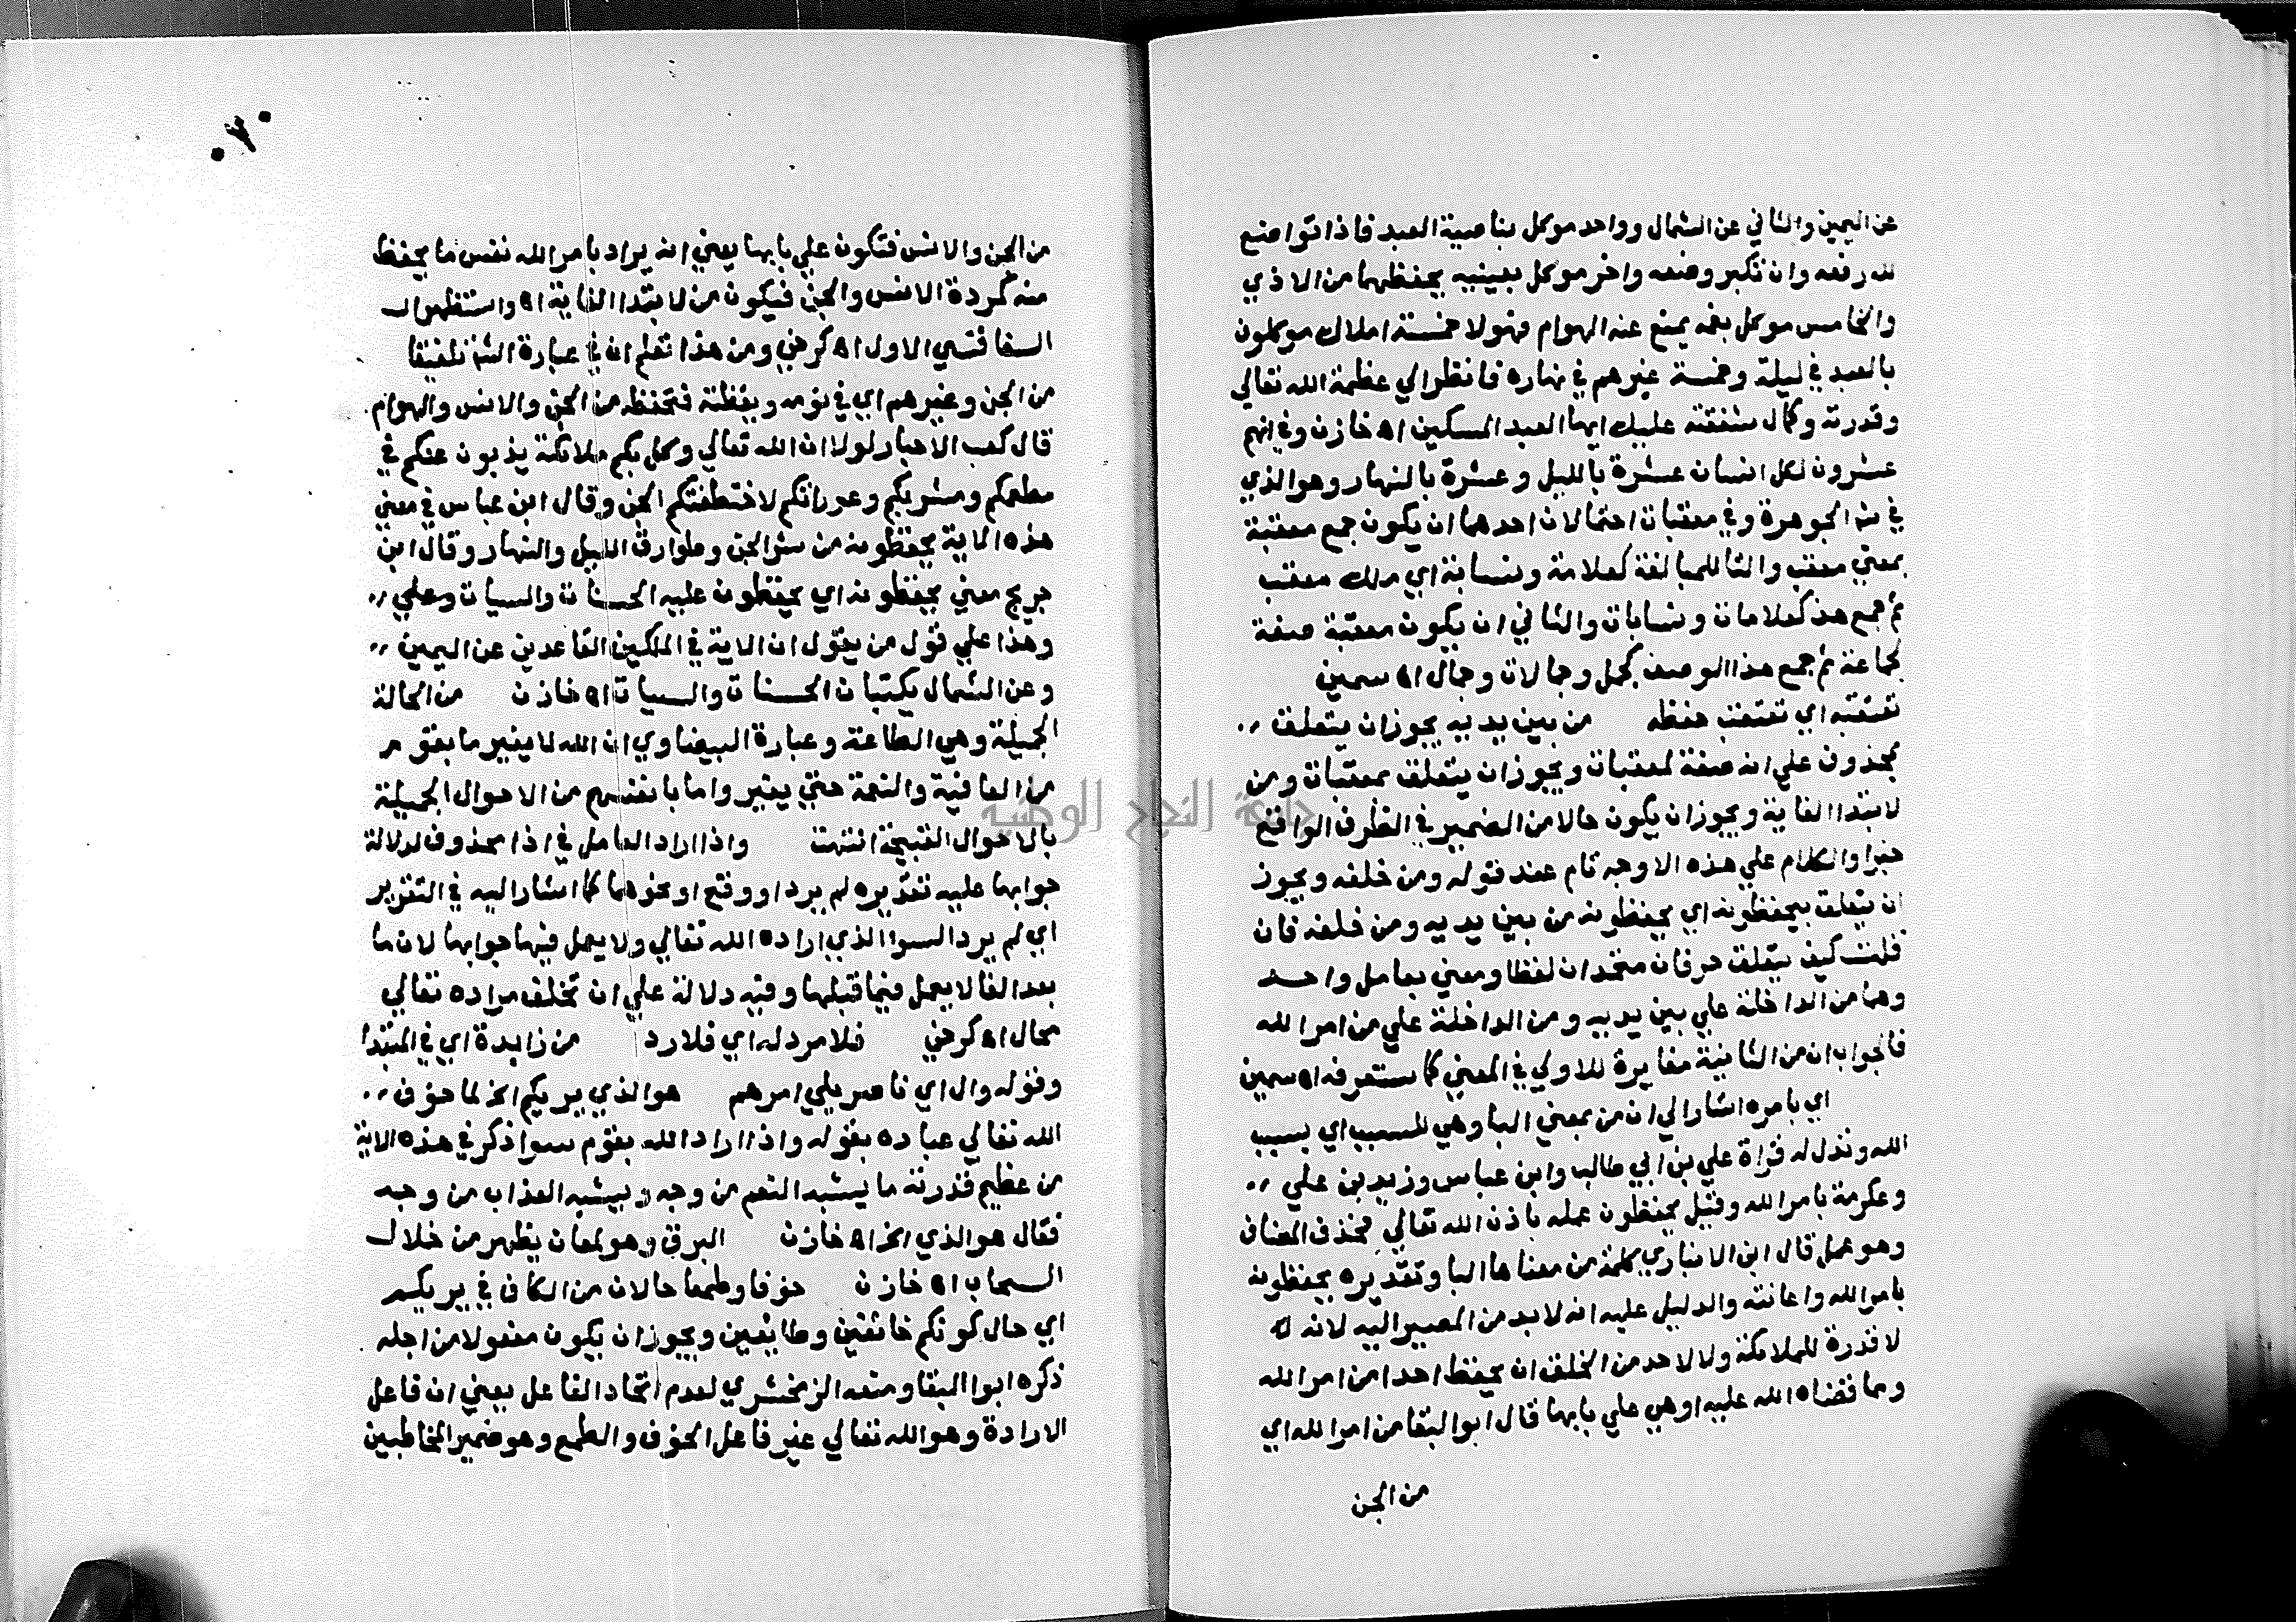 عن اليمين والثاني عن الشمال وواحد موكل بناصية العبد فاذا تواضع
لله رفعه وان تكبر وضعه واخر موكل بعينيه يحفظهما من الاذي
والخامس موكل بفمه يمنع عنه الهوام فهولا خمسة املاك موكلون
بالعبد في ليلة وخمسة غيرهم في نهاره فانظر الي عظمة الله تعالي
وقدرته وكمال شفقته عليك ايها العبد المسكين اه خازن وفي انهم
عشرون لكل انسان عشرة بالليل وعشرة بالنهار وهو الذي
في شر الجوهرة وفي معقبات احتمالان احدهما ان يكون جمع معقبة
بمعني معقب والتا للمبالغة كعلامة ونسابة اي ملك معقب
ثم جمع هذ كعلامات ونسابات والثاني ان يكون معقبة صفة
لجماعة ثم جمع هذا الوصف كجمل وجمالات وجمال اه سمين
تعتقبه اي تعتقب حفظه من بين يديه يجوز ان يتعلق
بمحذوف علي انه صفة لمعقبات ويجوز ان يتعلق بمعقبات ومن
لابتدا الغاية ويجوز ان يكون حالا من الضمير في الظرف الواقع
خبرا والكلام علي هذه الاوجه تام عند قوله ومن خلفه ويجوز
ان يتعلق بيحفظونه اي يحفظونه من بين يديه ومن خلفه فان
قلت كيف يتعلق حرفان متحدان لفظا ومعني بعامل واحد
وهما من الداخلة علي بين يديه ومن الداخلة علي من امر الله
فالجواب ان من الثانية مغايرة للاولي في المعني كما ستعرفه اه سمين
اي بامره اشار الي ان من بمعني البا وهي للسبب اي بسبب
الله وتدل له قراة علي بن ابي طالب وابن عباس وزيد بن علي
وعكرمة بامر الله وقيل يحفظون عمله باذن الله تعالي فحذف المضاف
وهو عمل قال ابن الانباري كلمة من معناها البا وتقديره يحفظونه
بامر الله واعانته والدليل عليه انه لا بد من المصير اليه لانه له
لا قدرة للملائكة ولا لاحد من الخلق ان يحفظ احدا من امر الله
ومما قضاه الله عليه او هي علي بابها قال ابو البقا من امر الله اي
من الجن
من الجن والانس فتكون علي بابها يعني انه يراد بامر الله نفس ما يحفظ
منه كمردة الانس والجن فيكون من لابتدا الغاية اه واستظهر ال
السفاقسي الاول اه كرخي ومن هذا تعلم ان في عبارة الش تلفيقا
من الجن وغيرهم اي في نومه ويقظته فتحفظه من الجن والانس والهوام
قال كعب الاحبار لولا ان الله تعالي وكل بكم ملائكة يذبون عنكم في
مطعمكم ومشربكم وعوراتكم لاختطفتكم الجن وقال ابن عباس في معني
هذه الاية يحفظونه من شر الجن وطوارق الليل والنهار وقال ابن
جريج معني يحفظونه اي يحفظون عليه الحسنات والسيات وعلي
وهذا علي قول من يقول ان الاية في الملكين القاعدين عن اليمين
وعن الشمال يكتبان الحسنات والسيات اه خازن من الحالة
الجميلة وهي الطاعة وعبارة البيضاوي ان الله لا يغير ما بقوم
من العافية والنعمة حتي يغيروا ما بانفسهم من الاحوال الجميلة
بالاحوال القبيحة انتهت واذا اراد العامل في اذا محذوف لدلالة
جوابها عليه تقديره لم يرد او وقع او نحوهما كما اشار اليه في التقرير
اي لم يرد السوا الذي اراده الله تعالي ولا يعمل فيها جوابها لان ما
بعد الفا لا يعمل فيما قبلها وفيه دلالة علي ان تخلف مراده تعالي
محال اه كرخي فلا مرد له اي فلا رد من زايدة اي في المبتدا
وقوله وال اي ناصر يلي امرهم هو الذي يريكم الخ لما خوف
الله تعالي عباده بقوله واذا اراد الله بقوم سوا ذكر في هذه الاية
من عظيم قدرته ما يشبه النعم من وجه ويشبه العذاب من وجه
فقال هو الذي الخ اه خازن البرق وهو لمعان يظهر من خلال
السحاب اه خازن خوفا وطمعا حالان من الكاف في يريكم
اي حال كونكم خائفين وطايعين ويجوز ان يكون مفعولا من اجله
ذكره ابوا البقا ومنعه الزمخشري لعدم اتحاد الفاعل يعني ان فاعل
الارادة وهو الله تعالي غير فاعل الخوف والطمع وهو ضمير المخاطبين
جامعة النجاح الوطنية